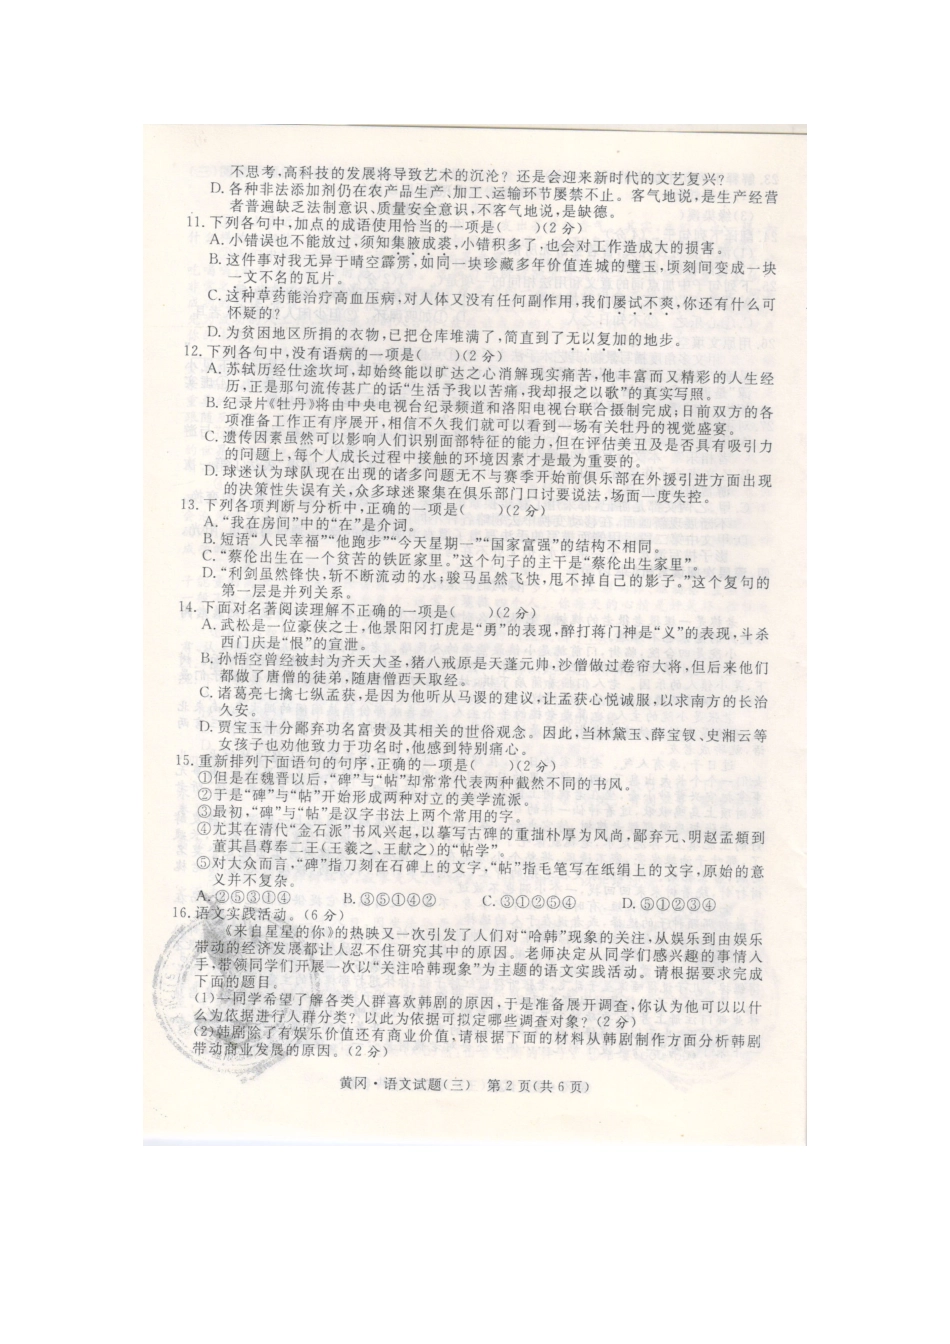 不思考,高科技的发展将导致艺术的沉沦？还是会迎来新时代的文艺复兴？
D. 各种非法添加剂仍在农产品生产、加工、运输环节屡禁不止。客气地说,是生产经营
者普遍缺乏法制意识、质量安全意识,不客气地说,是缺德。
11. 下列各句中,加点的成语使用恰当的一项是(　　)(2分)
A. 小错误也不能放过,须知集腋成裘,小错积多了,也会对工作造成大的损害。
B. 这件事对我无异于晴空霹雳,如同一块珍藏多年价值连城的璧玉,顷刻间变成一块
一文不名的瓦片。
C. 这种草药能治疗高血压病,对人体又没有任何副作用,我们屡试不爽,你还有什么可
怀疑的?
D. 为贫困地区所捐的衣物,已把仓库堆满了,简直到了无以复加的地步。
12. 下列各句中,没有语病的一项是(　　)(2分)
A. 苏轼历经仕途坎坷,却始终能以旷达之心消解现实痛苦,他丰富而又精彩的人生经
历,正是那句流传甚广的话“生活予我以苦痛,我却报之以歌”的真实写照。
B. 纪录片《牡丹》将由中央电视台纪录频道和洛阳电视台联合摄制完成;日前双方的各
项准备工作正有序展开,相信不久我们就可以看到一场有关牡丹的视觉盛宴。
C. 遗传因素虽然可以影响人们识别面部特征的能力,但在评估美丑及是否具有吸引力
的问题上,每个人成长过程中接触的环境因素才是最为重要的。
D. 球迷认为球队现在出现的诸多问题无不与赛季开始前俱乐部在外援引进方面出现
的决策性失误有关,众多球迷聚集在俱乐部门口讨要说法,场面一度失控。
13. 下列各项判断与分析中,正确的一项是(　　)(2分)
A. “我在房间”中的“在”是介词。
B. 短语“人民幸福”“他跑步”“今天星期一”“国家富强”的结构不相同。
C. “蔡伦出生在一个贫苦的铁匠家里。”这个句子的主干是“蔡伦出生家里”。
D. “利剑虽然锋快,斩不断流动的水;骏马虽然飞快,甩不掉自己的影子。”这个复句的
第一层是并列关系。
14. 下面对名著阅读理解不正确的一项是(　　)(2分)
A. 武松是一位豪侠之士,他景阳冈打虎是“勇”的表现,醉打蒋门神是“义”的表现,斗杀
西门庆是“恨”的宣泄。
B. 孙悟空曾经被封为齐天大圣,猪八戒原是天蓬元帅,沙僧做过卷帘大将,但后来他们
都做了唐僧的徒弟,随唐僧西天取经。
C. 诸葛亮七擒七纵孟获,是因为他听从马谡的建议,让孟获心悦诚服,以求南方的长治
久安。
D. 贾宝玉十分鄙弃功名富贵及其相关的世俗观念。因此,当林黛玉、薛宝钗、史湘云等
女孩子也劝他致力于功名时,他感到特别痛心。
15. 重新排列下面语句的句序,正确的一项是(　　)(2分)
①但是在魏晋以后,“碑”与“帖”却常常代表两种截然不同的书风。
②于是“碑”与“帖”开始形成两种对立的美学流派。
③最初,“碑”与“帖”是汉字书法上两个常用的字。
④尤其在清代“金石派”书风兴起,以摹写古碑的重拙朴厚为风尚,鄙弃元、明赵孟頫到
董其昌尊奉二王(王羲之、王献之)的“帖学”。
⑤对大众而言,“碑”指刀刻在石碑上的文字,“帖”指毛笔写在纸绢上的文字,原始的意
义并不复杂。
A. ②⑤③①④　　B. ③⑤①④②　　C. ③①②⑤④　　D. ⑤①②③④
16. 语文实践活动。(6分)
《来自星星的你》的热映又一次引发了人们对“哈韩”现象的关注,从娱乐到由娱乐
带动的经济发展都让人忍不住研究其中的原因。老师决定从同学们感兴趣的事情入
手,带领同学们开展一次以“关注哈韩现象”为主题的语文实践活动。请根据要求完成
下面的题目。
(1)一同学希望了解各类人群喜欢韩剧的原因,于是准备展开调查,你认为他可以以什
么为依据进行人群分类？以此为依据可拟定哪些调查对象？(2分)
(2)韩剧除了有娱乐价值还有商业价值,请根据下面的材料从韩剧制作方面分析韩剧
带动商业发展的原因。(2分)
黄冈·语文试题(三)　第2页(共6页)